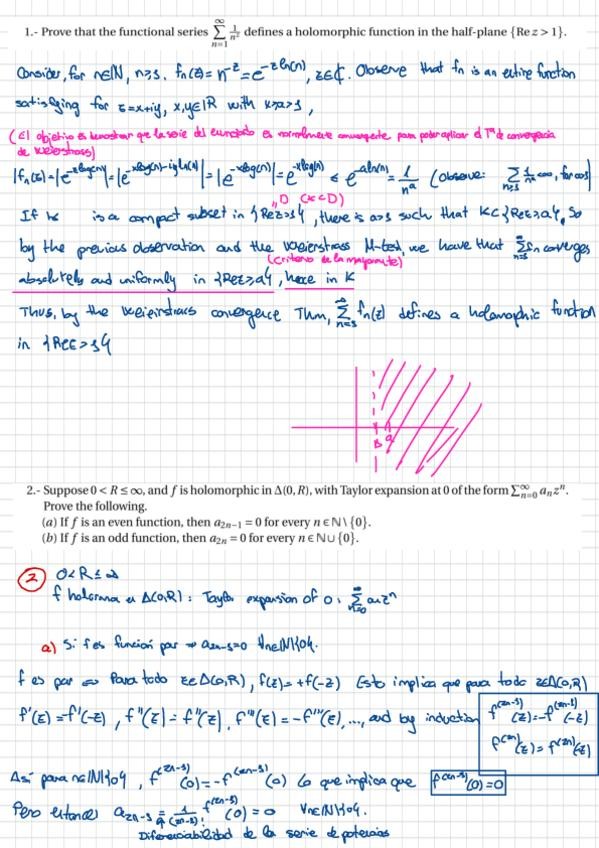 1.- Prove that the functional series ∑_{n=1}^{∞} 1/n^z defines a holomorphic function in the half-plane {Re z > 1}.
Consider, for n∈ℕ, n≥1, fn(z)=n^{-z}=e^{-z ln(n)}, z∈ℂ. Observe that fn is an entire function
satisfying for z=x+iy, x,y∈ℝ with x≥a>1,
(El objetivo es demostrar que la serie del enunciado es normalmente convergente para poder aplicar el T^a de convergencia
de Weierstrass)
|fn(z)|=|e^{-z log(n)}|=|e^{-x log(n)-iy ln(n)}|=|e^{-x log(n)}|=e^{-x log(n)} ≤ e^{-a ln(n)}=1/n^a (Observe: ∑_{n≥1} 1/n^a<∞, for a>1)
If K is a compact subset in {Re z>1}, there is a>1 such that K⊂{Re z>a}. So
by the previous observation and the Weierstrass M-test, we have that ∑_{n=1}^{∞} fn converges
(criterio de la mayorante)
absolutely and uniformly in {Re z>a}, hence in K
Thus, by the Weierstrass convergence Thm, ∑_{n=1}^{∞} fn(z) defines a holomorphic function
in {Re z>1}
1 a
2.- Suppose 0 < R ≤ ∞, and f is holomorphic in Δ(0, R), with Taylor expansion at 0 of the form ∑_{n=0}^{∞} a_n z^n.
Prove the following.
(a) If f is an even function, then a_{2n−1} = 0 for every n ∈ ℕ \ {0}.
(b) If f is an odd function, then a_{2n} = 0 for every n ∈ ℕ ∪ {0}.
2 0<R≤∞
f holomorfa en Δ(0,R): Taylor expansion of 0: ∑_{n=0}^{∞} anz^n
a) Si f es función par ⇒ a_{2n-1}=0 ∀n∈ℕ\{0}.
f es par ⇔ Para todo z∈Δ(0,R), f(z)=+f(-z) Esto implica que para todo z∈Δ(0,R)
f'(z)=-f'(-z), f''(z)=f''(-z), f'''(z)=-f'''(-z), ..., and by induction f^{(2n-1)}(z)=-f^{(2n-1)}(-z)
f^{(2n)}(z)=f^{(2n)}(-z)
Así para n∈ℕ\{0}, f^{(2n-1)}(0)=-f^{(2n-1)}(0) lo que implica que f^{(2n-1)}(0)=0
Pero entonces a_{2n-1}=1/(2n-1)! f^{(2n-1)}(0)=0 ∀n∈ℕ\{0}.
Diferenciabilidad de la serie de potencias